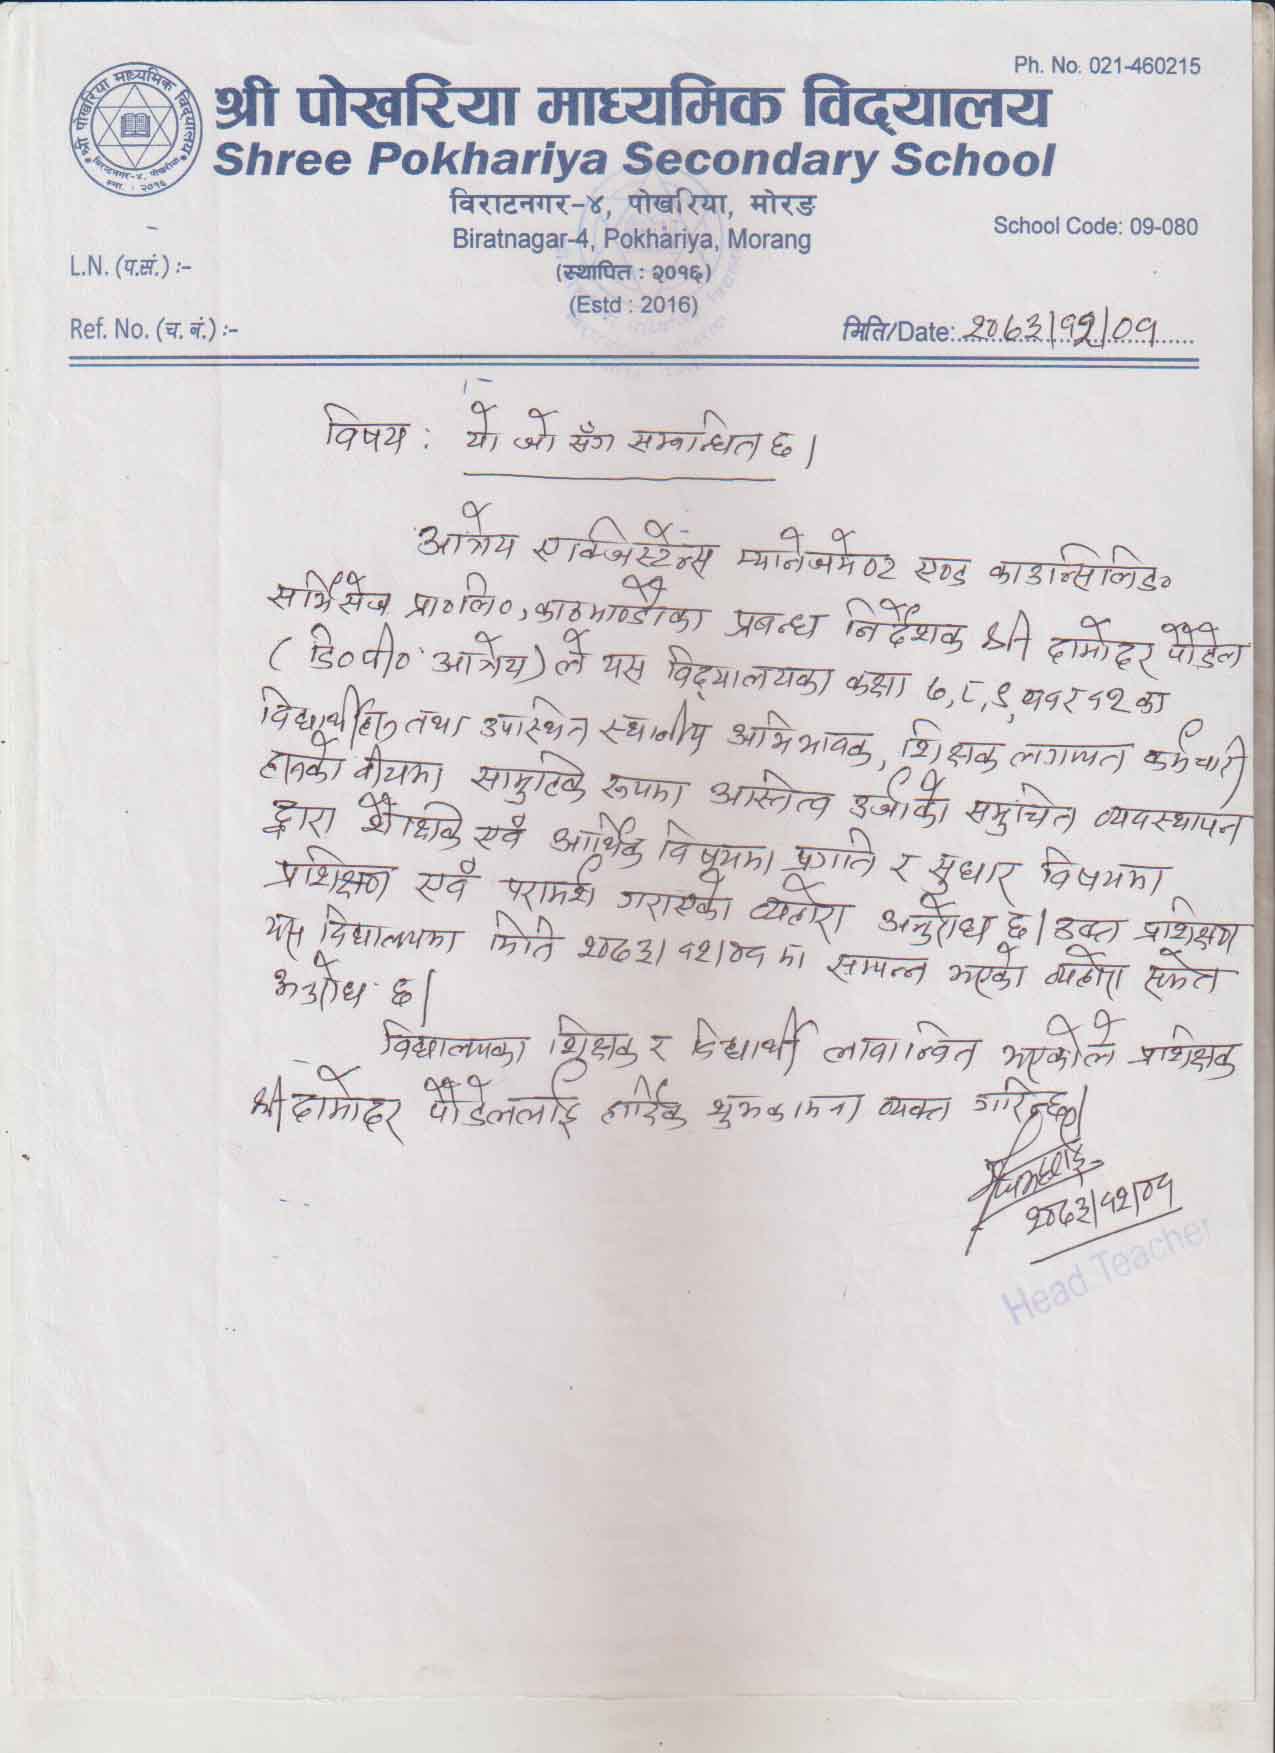 Ph. No. 021-460215
श्री पोखरिया माध्यमिक विद्यालय
श्री पोखरिया माध्यमिक विद्यालय
विराटनगर-४, पोखरिया
स्था. : २०१६
Shree Pokhariya Secondary School
विराटनगर-४, पोखरिया, मोरङ
Biratnagar-4, Pokhariya, Morang
School Code: 09-080
L.N. (प.सं.) :-
(स्थापित : २०१६)
(Estd : 2016)
Ref. No. (च.नं.) :-
मिति/Date: २०७३/१२/०१
विषय : यो जो सँग सम्बन्धित छ।
आत्रेय एक्जिस्टेन्स म्यानेजमेण्ट एण्ड काउन्सिलिङ०
सर्भिसेज प्रा०लि०, काठमाण्डौका प्रबन्ध निर्देशक श्री दामोदर पौडेल
(डि०पी० आत्रेय) ले यस विद्यालयका कक्षा ७,८,९, र १२ का
विद्यार्थीहरु तथा उपस्थित स्थानीय अभिभावक, शिक्षक लगायत कर्मचारी
हरुको बीचमा सामुहिक रूपमा अस्तित्व उर्जाको समुचित व्यवस्थापन
द्वारा शैक्षिक एवँ आर्थिक विषयमा प्रगति र सुधार विषयमा
प्रशिक्षण एवँ परामर्श गराएको व्यहोरा अनुरोध छ। उक्त प्रशिक्षण
यस विद्यालयमा मिति २०७३/१२/०१ मा सम्पन्न भएको व्यहोरा समेत
अनुरोध छ।
विद्यालयका शिक्षक र विद्यार्थी लावान्वित भएकोले प्रशिक्षक
श्री दामोदर पौडेललाई हार्दिक शुभकामना व्यक्त गरिन्छ।
२०७३/१२/०१
Head Teacher